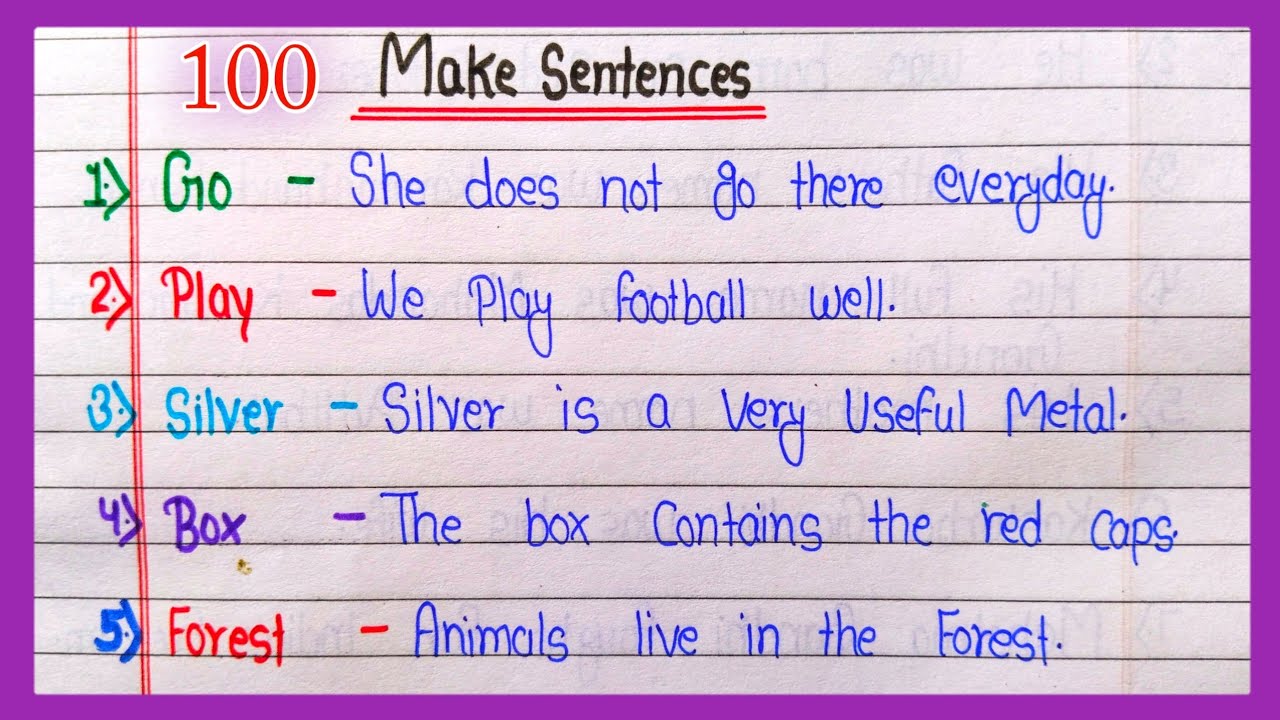 100 Make Sentences
1) Go - She does not go there everyday.
2) Play - We Play football well.
3) Silver - Silver is a very Useful Metal.
4) Box - The box Contains the red caps.
5) Forest - Animals live in the Forest.